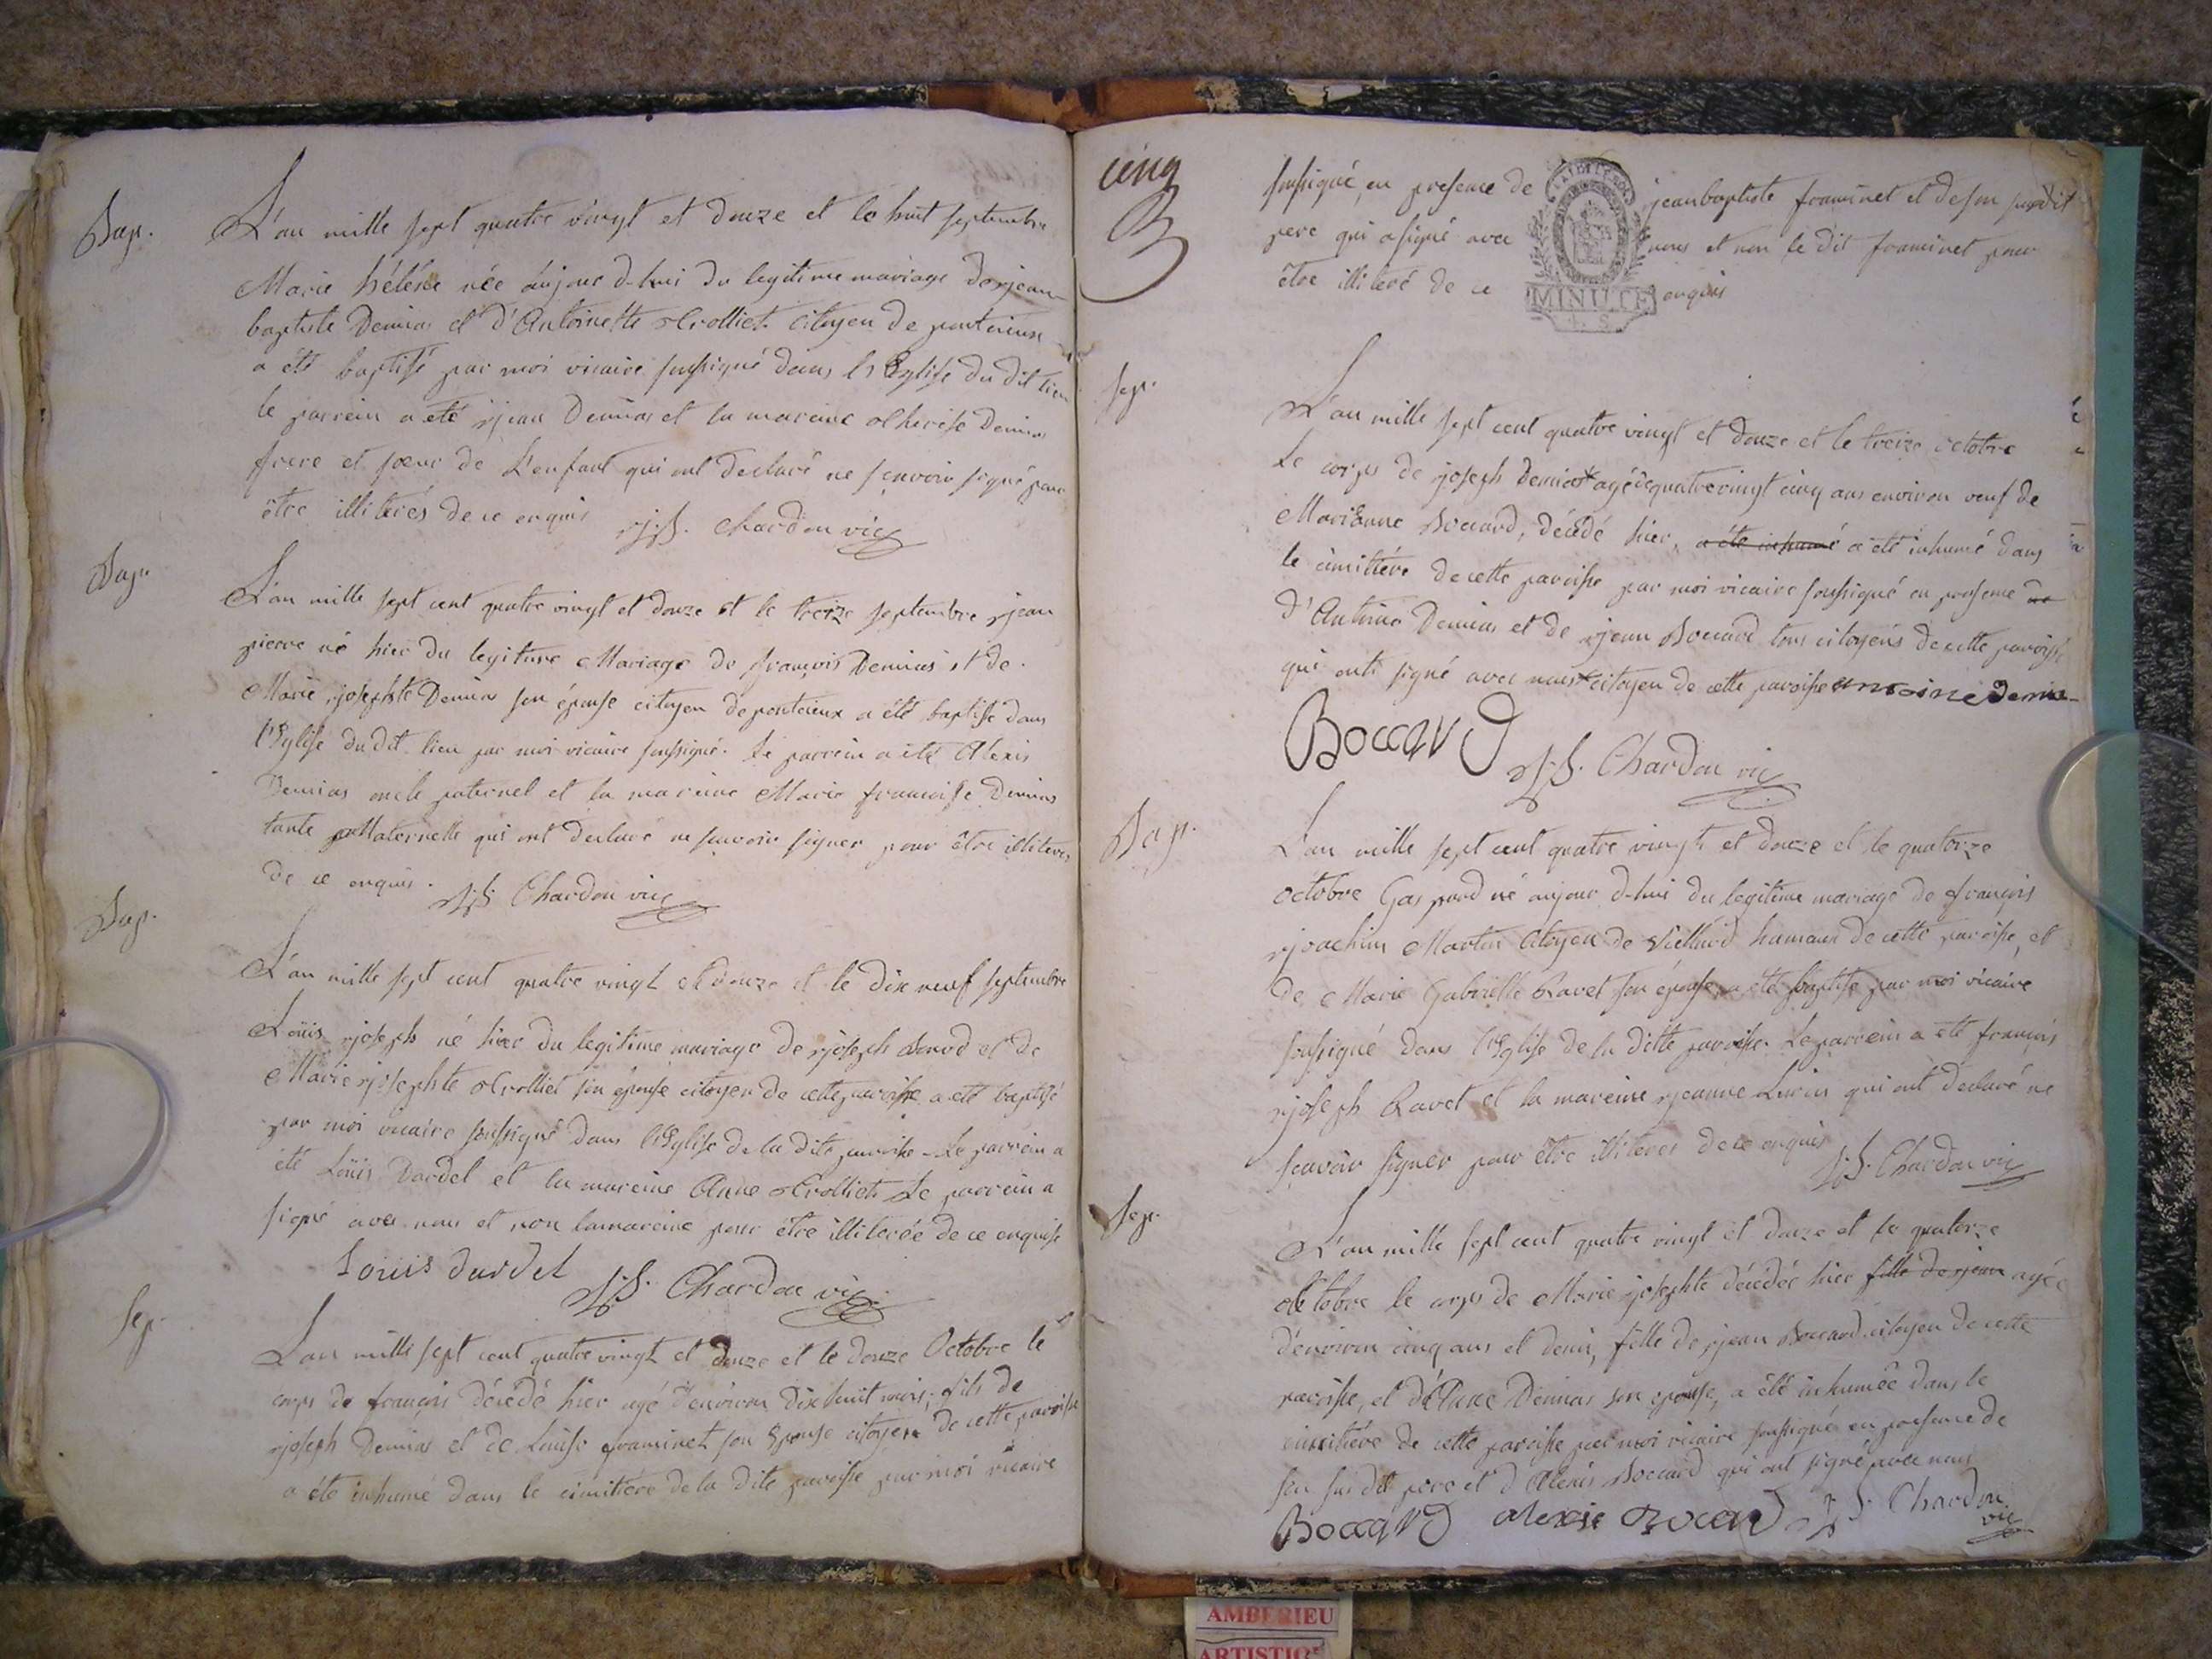 Bap.
L'an mille sept quatre vingt et douze et le huit septembre
Marie hélène née aujour d-hui du legitime mariage de jean
baptiste Demias et d'Antoinette Crolliet citoyen de pontcieux
a été baptisé par moi vicaire soussigné dans l'Eglise du dit lieu
le parrein a eté jean Demias et la mareine therese Demias
frere et soeur de L'enfant qui ont declaré ne sçavoir signé pour
être illiterés de ce enquis J.B. Chardon vic
Bap.
L'an mille sept cent quatre vingt et douze et le treize septembre jean
pierre né hier du legitime Mariage de françois Demias et de
Marie josephte Demias son épouse citoyen de pontcieux a été baptisé dans
l'Eglise du dit lieu par moi vicaire soussigné. le parrein a été Alexis
Demias oncle paternel et la mareine Marie françoise Demias
tante Maternelle qui ont declaré ne sçavoir signer pour être illiteres
de ce enquis. J.B. Chardon vic
Bap.
L'an mille sept cent quatre vingt et douze et le dix neuf septembre
Loüis joseph né hier du legitime mariage de joseph et de
Marie josephte Crolliet son épouse citoyen de cette paroisse a eté baptisé
par moi vicaire soussigné dans l'Eglise de la dite paroisse. Le parrein a
été Loüis Dardel et la mareine Anne Crolliet. Le parrein a
signé avec nous et non la mareine pour être illiterée de ce enquise
Louis dardel J.B. Chardon vic
Sep.
L'an mille sept cent quatre vingt et douze et le douze Octobre le
corps de françois décédé hier agé d'environ dix huit mois, fils de
joseph Demias et de Louise framinet son Epouse citoyen de cette paroisse
a été inhumé dans le cimitière de la dite paroisse par moi vicaire
cinq
soussigné, en presence de jean baptiste framinet et de son susdit
pere qui a signé avec nous et non le dit framinet pour
être illiteré de ce enquis
MINUTE
Sep.
L'an mille sept cent quatre vingt et douze et le treize octobre
Le corps de joseph Demias agé de quatre vingt cinq ans environ veuf de
Marianne Boccard, décédé hier, a été inhumé a été inhumé dans
le cimitière de cette paroisse par moi vicaire soussigné en presence de
d'Antoine Demias et de jean Boccard tous citoyens de cette paroisse
qui onts signé avec nous citoyen de cette paroisse antoine demias
Boccard J.B. Chardon vic
Bap.
L'an mille sept cent quatre vingt et douze et le quatorze
octobre Gaspard né aujour d-hui du legitime mariage de françois
joachim Martin citoyen de hameau de cette paroisse, et
de Marie Gabrielle Ravet son épouse, a été baptisé par moi vicaire
soussigné dans l'Eglise de la ditte paroisse. Le parrein a eté françois
joseph Ravet et la mareine jeanne qui ont declaré ne
sçavoir signer pour être illiteres de ce enquis J.B. Chardon vic
Sep.
L'an mille sept cent quatre vingt et douze et le quatorze
octobre le corps de Marie josephte décédée hier fille de jean agée
d'environ cinq ans et demi, fille de jean Boccard citoyen de cette
paroisse, et d'Anne Demias son epouse, a été inhumée dans le
cimitière de cette paroisse par moi vicaire soussigné en presence de
son susdit pere et d'Alexis Boccard qui ont signé avec nous
Boccard alexis Boccard J.B. Chardon
vic
AMBERIEU